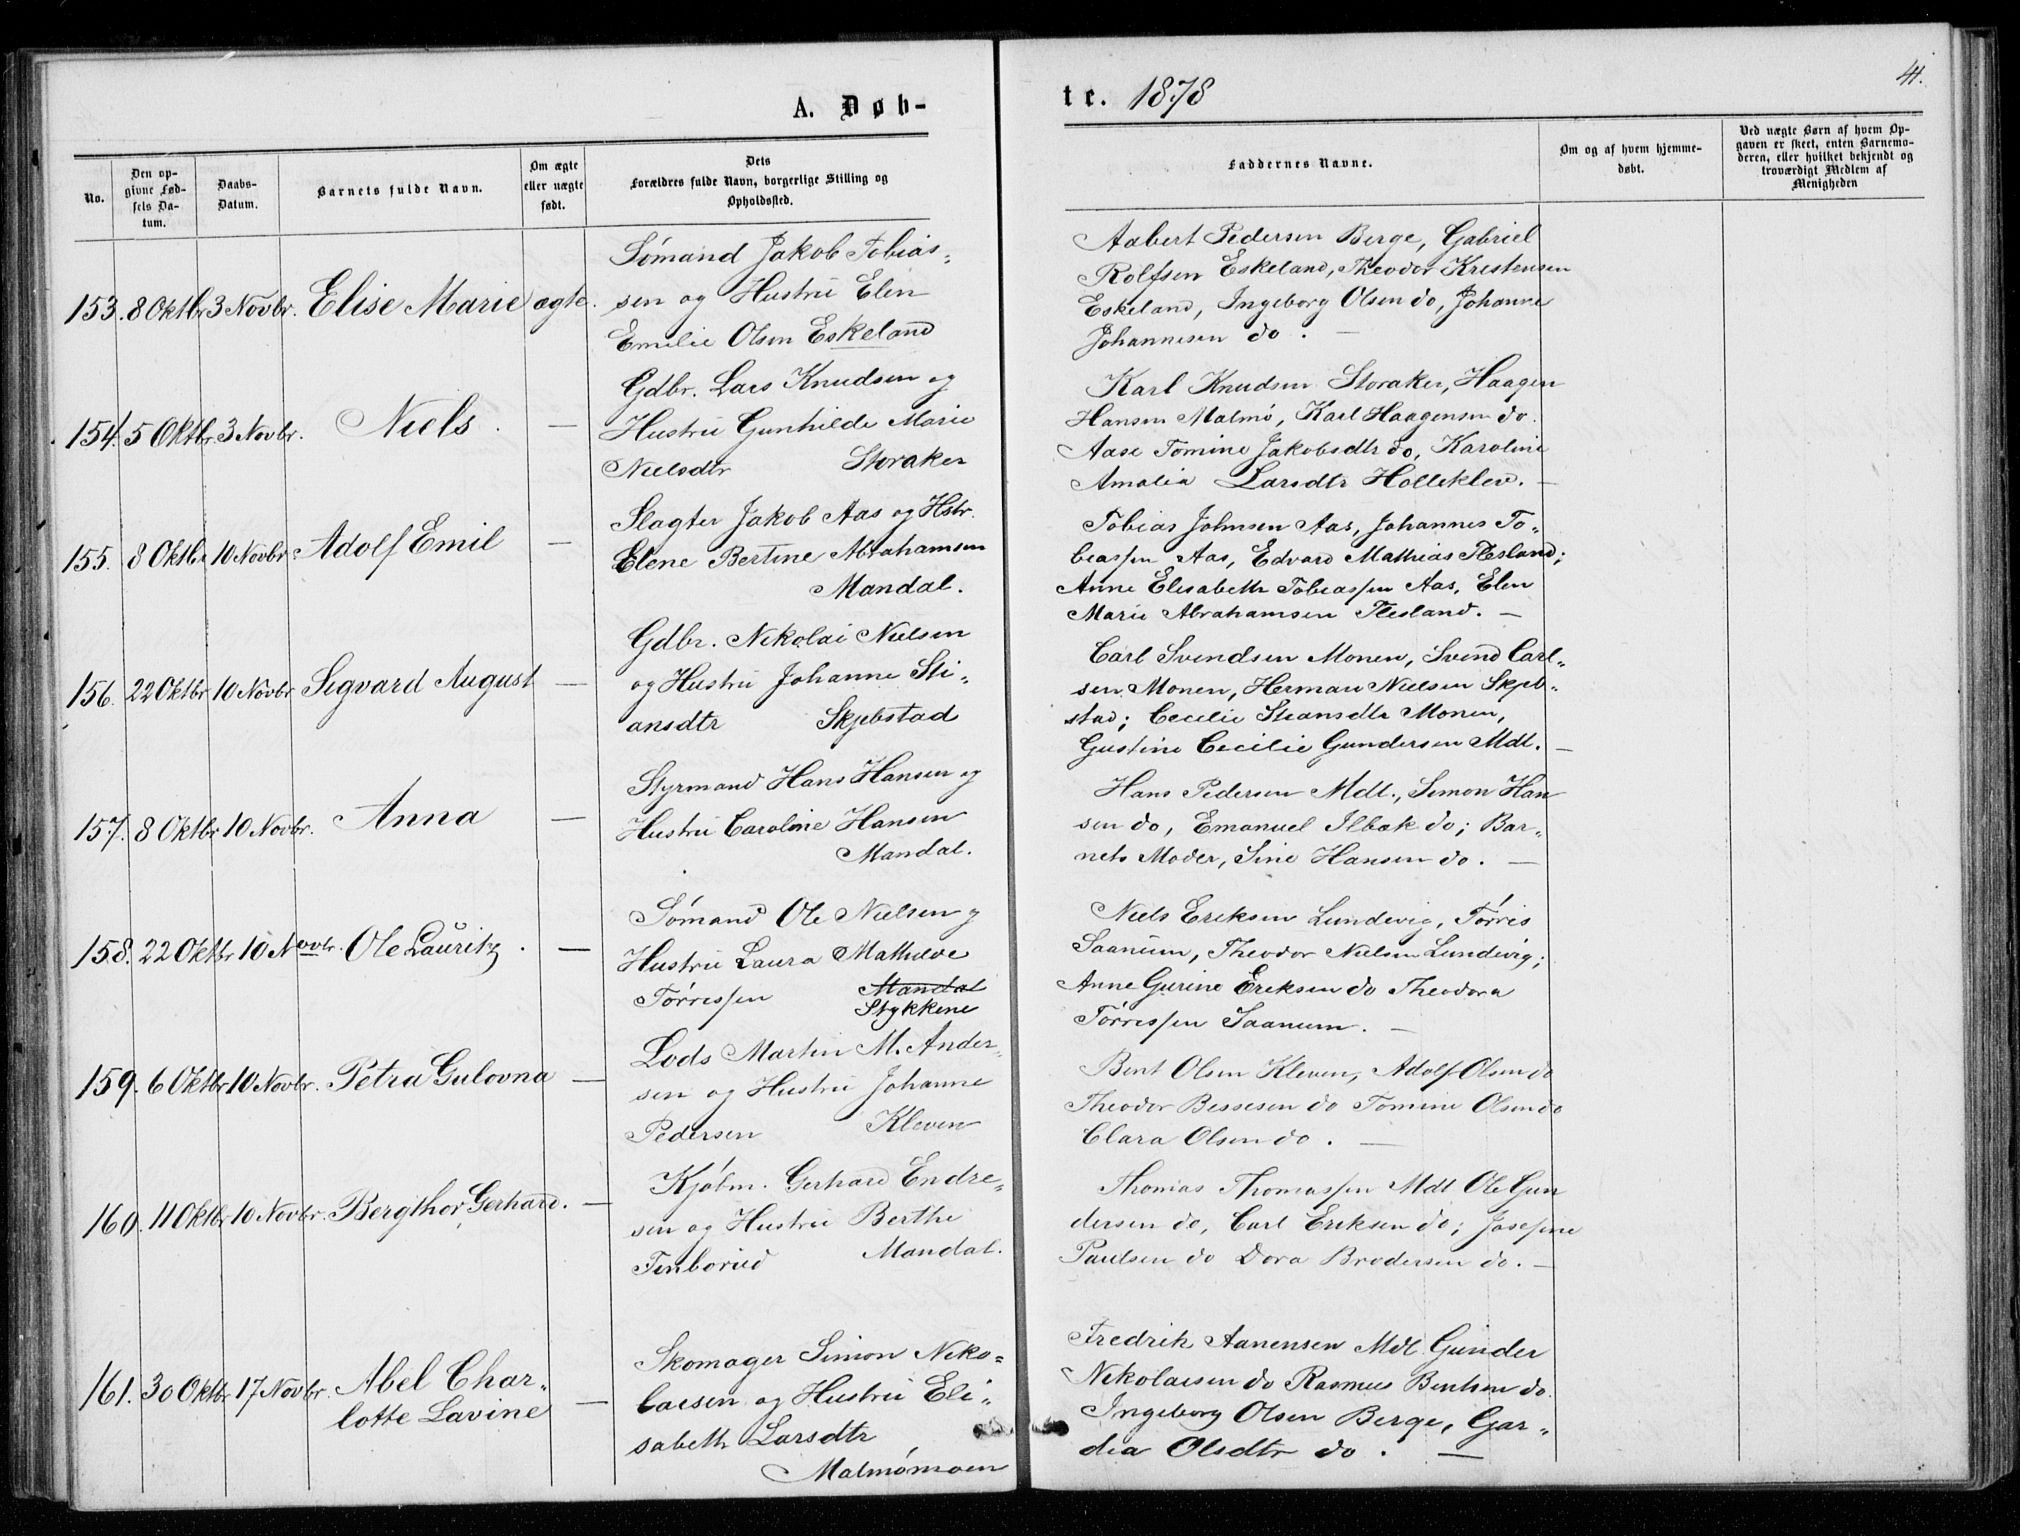 A. Døb-
te. 1878
41.
No.
Den op-
givne Fød-
sels Da-
tum.
Daabs-
Datum.
Barnets fulde Navn.
Om ægte
eller uægte
født.
Dets
Forældres fulde Navn, borgerlige Stilling og
Opholdssted.
Faddernes Navne.
Om og af hvem hjemme-
døbt.
Ved uægte Børn af hvem Op-
gaven er skeet, enten Barnemo-
deren, eller hvilket bekjendt og
troværdigt Medlem af
Menigheden
153. 8 Oktbr 3 Novbr. Elise Marie ægte.
Sømand Jakob Tobias-
sen og Hustru Elen
Emilie Olsen Eskeland
Aabert Pedersen Berge, Gabriel
Rolfsen Eskeland, Theodor Kristensen
Eskeland, Ingeborg Olsen do, Johanne
Johannesen do. —
154. 5 Oktbr 3 Novbr. Niels. —
Gdbr. Lars Knudsen og
Hustru Gunhilde Marie
Nielsdtr Storaker
Karl Knudsen Storaker, Haagen
Hansen Malmø, Karl Haagensen do.
Aase Tomine Jakobsdtr do, Karoline
Amalia Larsdtr Holleklev. —
155. 8 Oktbr 10 Novbr. Adolf Emil —
Slagter Jakob Aas og Hstr.
Elene Bertine Abrahamsen
Mandal.
Tobias Johnsen Aas, Johannes To-
biassen Aas, Edvard Mathias Flesland;
Anne Elisabeth Tobiassen Aas, Elen
Marie Abrahamsen Flesland. —
156. 22 Oktbr 10 Novbr Sigvard August —
Gdbr. Nikolai Nielsen
og Hustru Johanne Sti-
ansdtr Skjebstad
Carl Svendsen Monen, Svend Carl-
sen Monen, Herman Nielsen Skjeb-
stad; Cecilie Stiansdtr Monen,
Gustine Cecilie Gundersen Mdl. —
157. 8 Oktbr 10 Novbr. Anna —
Styrmand Hans Hansen og
Hustru Caroline Hansen
Mandal.
Hans Pedersen Mdl., Simon Han
sen do, Emanuel Ilbæk do; Bar-
nets Moder, Sine Hansen do. —
158. 22 Oktbr 10 Novbr. Ole Lauritz. —
Sømand Ole Nielsen og
Hustru Laura Mathilde
Tørressen Mandal
Stykkene
Niels Eriksen Lundevig, Tørris
Saanum, Theodor Nielsen Lundevig;
Anne Gurine Eriksen do Theodora
Tørressen Saanum. —
159. 6 Oktbr 10 Novbr. Petra Gulovna —
Lods Martin M. Ander-
sen og Hustru Johanne
Pedersen Kleven
Bent Olsen Kleven, Adolf Olsen do
Theodor Bessesen do Tomine Olsen do
Clara Olsen do. —
160. 11 Oktbr 10 Novbr. Bergithor Gerhard. —
Kjøbm. Gerhard Endre-
sen og Hustru Berthe
Finborud Mandal.
Thomas Thomassen Mdl Ole Gun
dersen do, Carl Eriksen do; Josefine
Paulsen do Dora Brodersen do. —
161. 30 Oktbr 17 Novbr. Abel Char-
lotte Lavine —
Skomager Simon Niko-
laisen og Hustru Eli-
sabeth Larsdtr
Malmømoen
Fredrik Aanensen Mdl Gunder
Nikolaisen do Rasmus Bentsen do.
Ingeborg Olsen Berge, Gar-
dia Olsdtr do. —